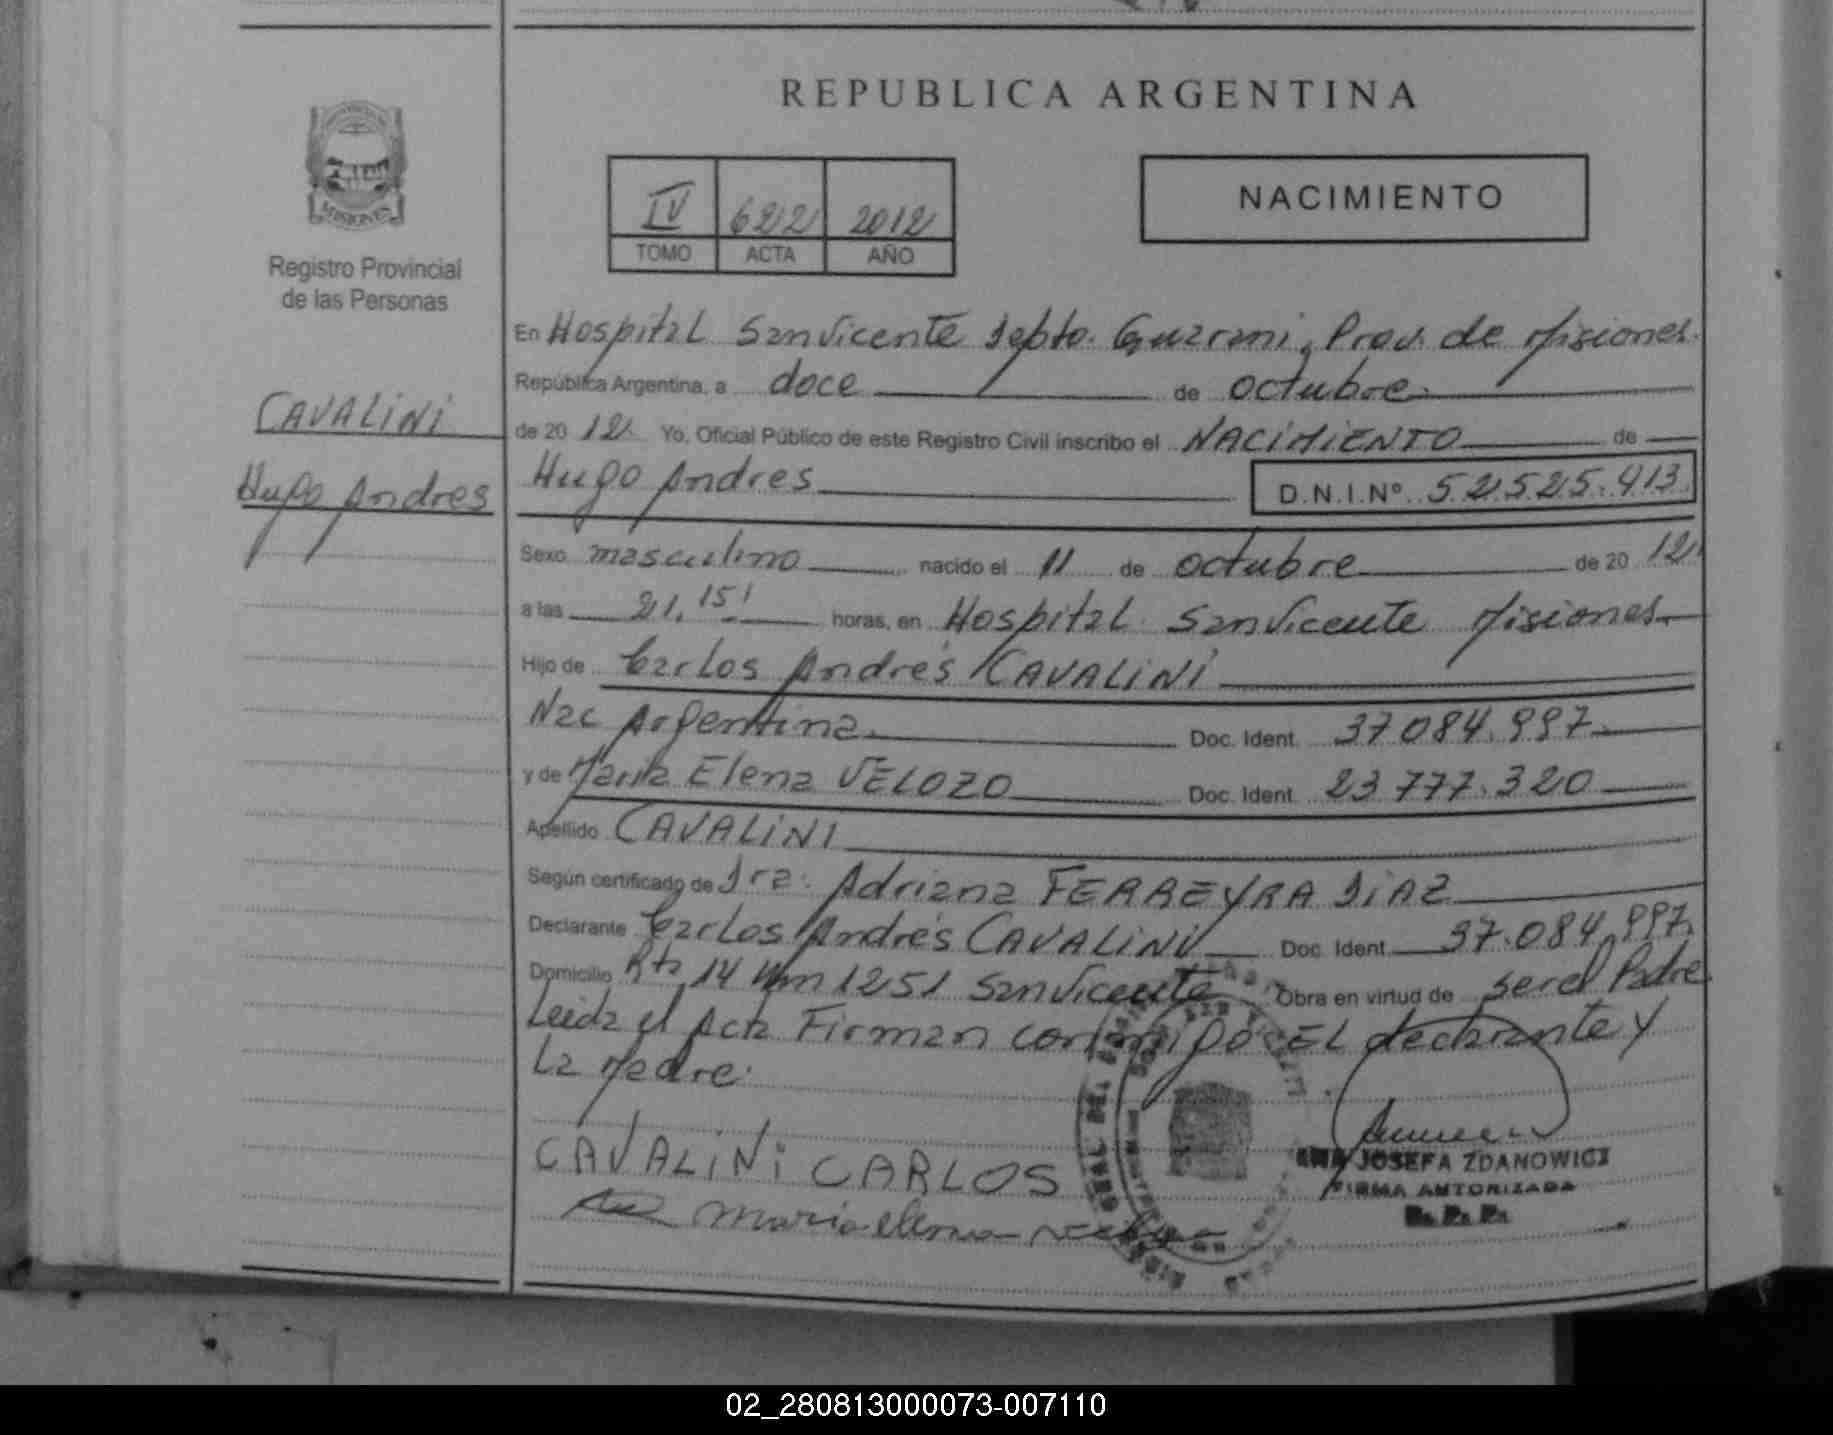 REPUBLICA ARGENTINA
MISIONES
Registro Provincial
de las Personas
IV 622 2012
TOMO ACTA AÑO
NACIMIENTO
CAVALINI
Hugo Andres
En Hospital San Vicente Depto. Guarani, Prov. de Misiones.
República Argentina, a doce de octubre
de 2012 Yo, Oficial Público de este Registro Civil inscribo el NACIMIENTO de
Hugo Andres D.N.I.Nº 52.525.413
Sexo masculino nacido el 11 de octubre de 2012
a las 21,15' horas, en Hospital San Vicente Misiones
Hijo de Carlos Andrés CAVALINI
Nac Argentina Doc. Ident. 37.084.997
y de Maria Elena VELOZO Doc. Ident. 23.777.320
Apellido CAVALINI
Según certificado de Dra. Adriana FERREYRA DIAZ
Declarante Carlos Andrés CAVALINI Doc. Ident. 37.084.997.
Domicilio Rta 14 Km 1251 San Vicente Obra en virtud de ser el Padre
Leida el Acta Firman conmigo EL declarante y
La Madre.
CAVALINI CARLOS
Maria elena
ANA JOSEFA ZDANOWICZ
FIRMA AUTORIZADA
R. P. P.
02_280813000073-007110